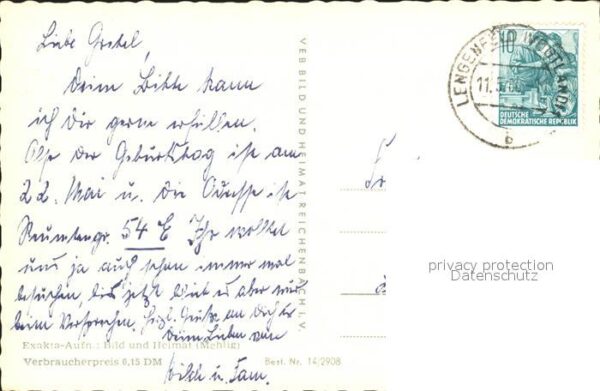 Liebe Gretel,
Deine Bitte kann
ich Dir gerne erfüllen.
Also der Geburtstag ist am
22. Mai u. die Adresse ist
54 E Ihr wolltet
uns ja auch schon immer mal
besuchen, bis jetzt blieb es aber nur
beim Versprechen. Herzl. Grüße an Dich u.
Deine Lieben von
u. Fam.
VEB BILD UND HEIMAT REICHENBACH I. V.
Exakta-Aufn.: Bild und Heimat (Mehlig)
Verbraucherpreis 0,15 DM
Best. Nr. 14/2908
LENGENFELD (VOGTLAND)
11.5.60
b
10
DEUTSCHE
DEMOKRATISCHE REPUBLIK
privacy protection
Datenschutz